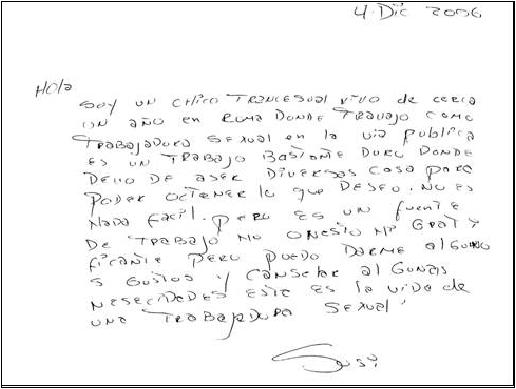 4 Dic 2006
Hola
Soy un chico trancesual vivo de cerca
un año en Roma donde travajo como
trabajadora sexual en la via publica
es un trabajo bastante duro donde
devo de aser diversas cosa para
poder octener lo que deseo. No es
nada facil. Pero es un fuente
de trabajo no onesto ni grati
ficante pero puedo darme alguno
s gustos y canselar algunas
nesecidades este es la vida de
una trabajadora sexual
Susi